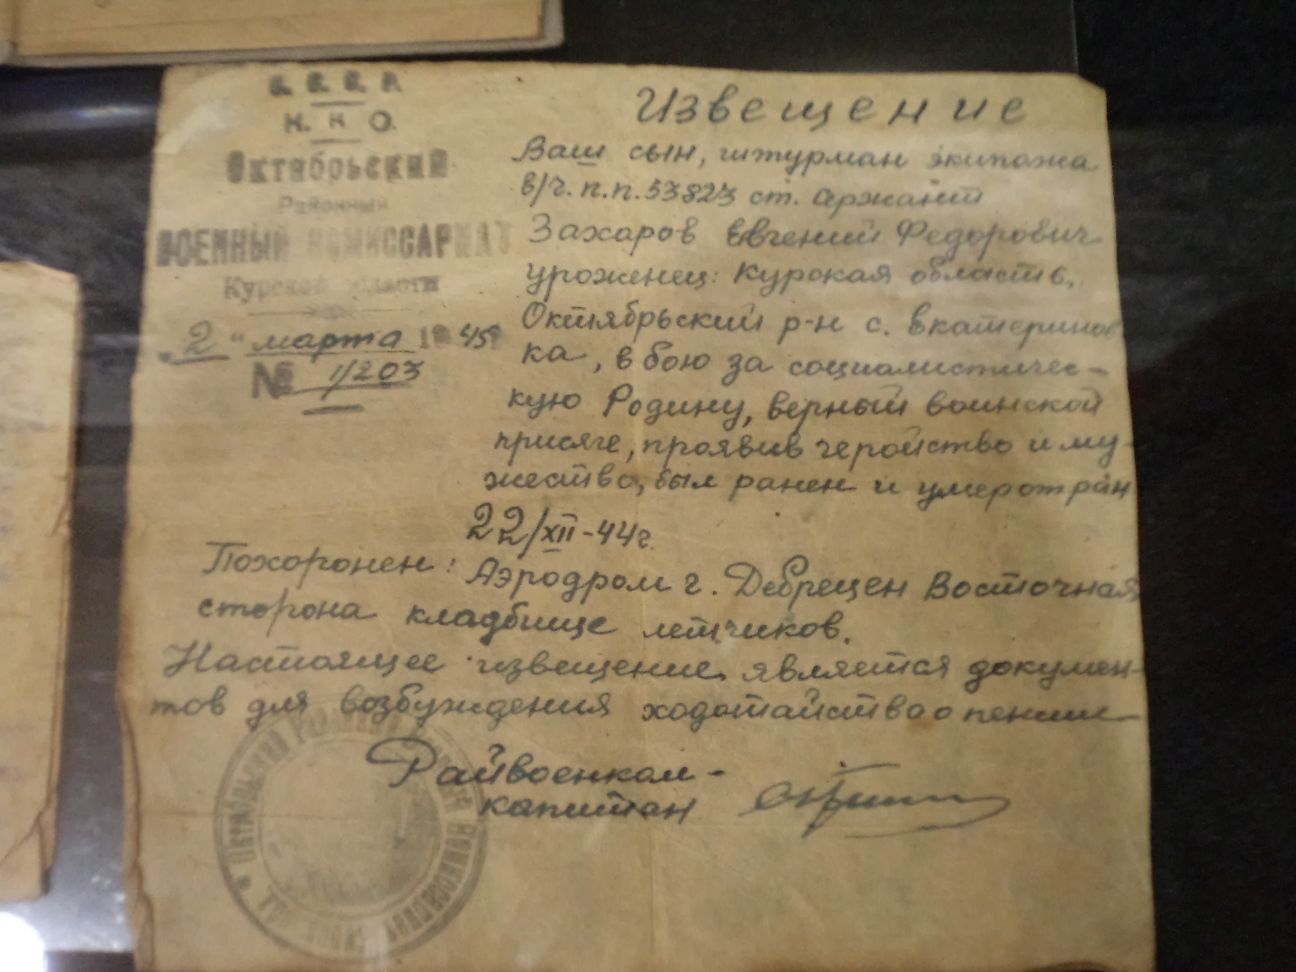 С.С.С.Р.
Н.К.О.
Октябрьский
Районный
ВОЕННЫЙ КОМИССАРИАТ
Курской области
„2" марта 1945г
№ 1/203
Извещение
Ваш сын, штурман экипажа
в/ч. п.п. 53823 ст. сержант
Захаров Евгений Федорович
уроженец: Курская область,
Октябрьский р-н с. Екатеринов
ка, в бою за социалистичес-
кую Родину, верный воинской
присяге, проявив геройство и му-
жество, был ранен и умер от ран
22/XII-44г.
Похоронен: Аэродром г. Дебрецен Восточная
сторона кладбище летчиков.
Настоящее извещение является докумен-
тов для возбуждения ходатайства о пенсии
Райвоенком -
капитан